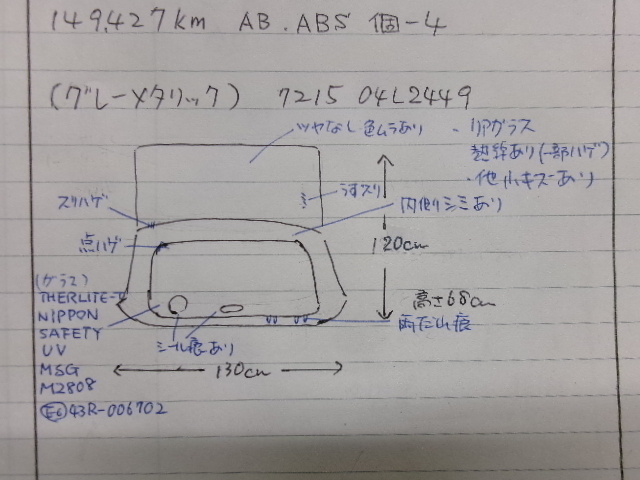 149,427km AB.ABS 個-4
(グレーメタリック) 7215 04L2449
ツヤなし色ムラあり
・リアガラス
熱幹あり(一部ハゲ)
・他小キズ あり
うすズリ
ズリハゲ
内側シミあり
点ハゲ
120cm
(ガラス)
THERLITE-T
NIPPON
SAFETY
UV
MSG
M2808
E6 43R-006702
高さ68cm
雨だれ痕
シール痕あり
130cm